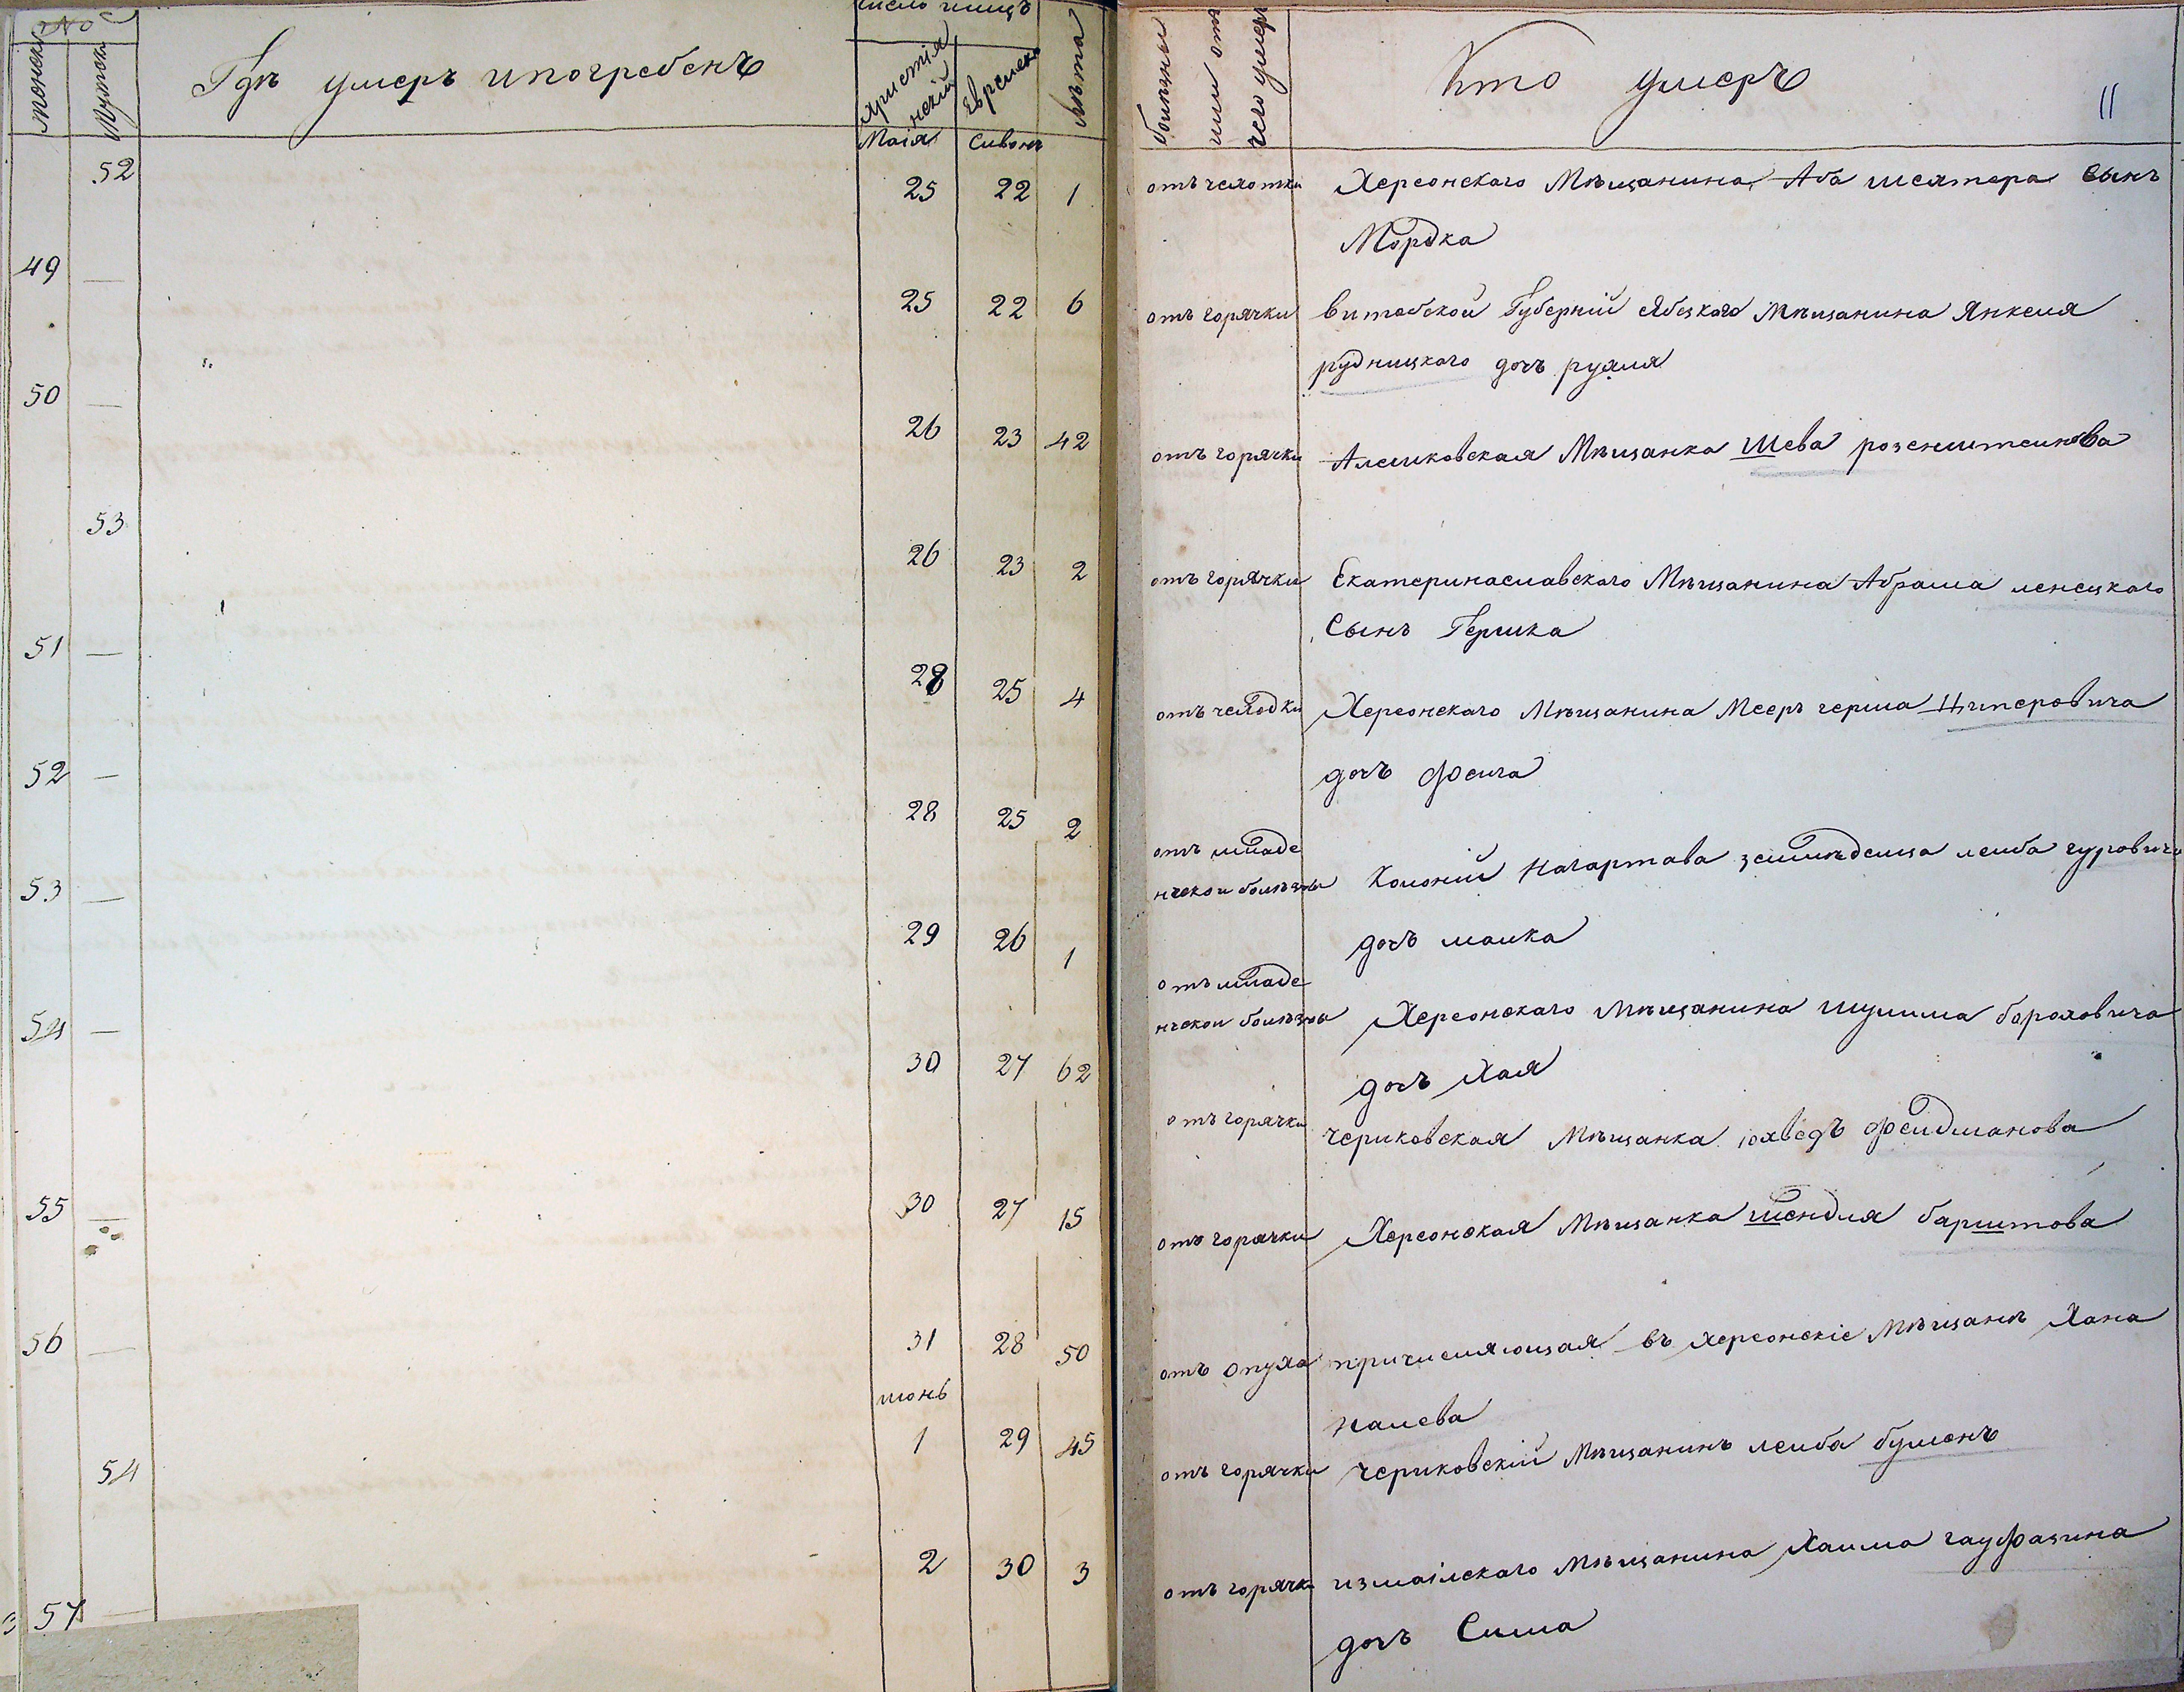 №
женски
Мужски
Гдѣ умеръ и погребенъ
Число
христіянскій
Еврейски
лѣта
болѣзны или отъ чего умеръ
Кто умеръ
11
Маія
Сивонъ
52 25 22 1 отъ чехотки Херсонскаго Мѣщанина Аба шехтера Сынъ
Мордка
49 — 25 22 6 отъ горячки витебской Губерніи Мѣщанина Янкеля
рудницкаго дочъ рухля
50 — 26 23 42 отъ горячки Алешковская Мѣщанка Шева розенштеинова
53 26 23 2 отъ горячки Екатеринаславскаго Мѣщанина Абрама ленецкаго
Сынъ Гершка
51 — 28 25 4 отъ чеходки Херсонскаго Мѣщанина Мееръ герша Циперовича
дочъ фейга
52 — 28 25 2 отъ младе
нческои болѣзны Колоніи Нагартава земледелца леиба гуровича
дочъ малка
53 — 29 26 1 отъ младе
нческои болѣзны Херсонскаго Мѣщанина шулима бороховича
дочъ Хая
54 — 30 27 62 отъ горячки чериковская Мѣщанка юхведъ фелдманова
55 — 30 27 15 отъ горячки Херсонская Мѣщанка шендля барштова
56 — 31 28 50 отъ опуха причисляющая въ херсонскіе Мѣщанѣ Хана
Калева
июнь
54 1 29 45 отъ горячки чериковскій Мѣщанинъ леиба булменъ
57 — 2 30 3 отъ горячки измаілскаго Мѣщанина Хаима гауфацина
дочъ Сима